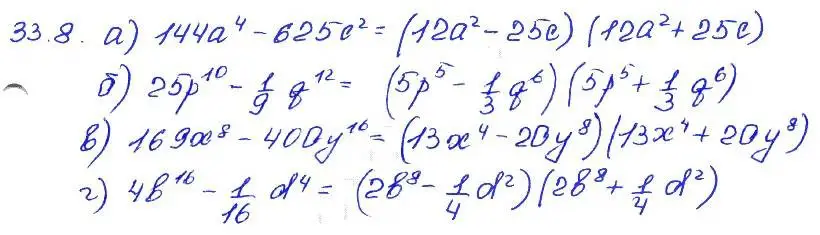 33.8. а) 144a⁴ - 625c² = (12a² - 25c) (12a² + 25c)
б) 25p¹⁰ - 1/9 q¹² = (5p⁵ - 1/3 q⁶) (5p⁵ + 1/3 q⁶)
в) 169x⁸ - 400y¹⁶ = (13x⁴ - 20y⁸) (13x⁴ + 20y⁸)
г) 4b¹⁶ - 1/16 d⁴ = (2b⁸ - 1/4 d²) (2b⁸ + 1/4 d²)